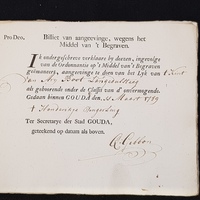 Pro Deo,
Billiet van aangeevinge, wegens het
Middel van 't Begraven.
Ik ondergeschreve verklaare by deezen, ingevolge
van de Ordonnantie op 't Middel van 't Begraven
geëmaneert, aangeevinge te doen van het Lyk van 't Kint
van Ary Boot
als gehoorende onder de Classis van d' onvermogende.
Gedaan binnen GOUDA, den 21 Maart 1789
Ter Secretarye der Stad GOUDA,
geteekend op datum als boven.